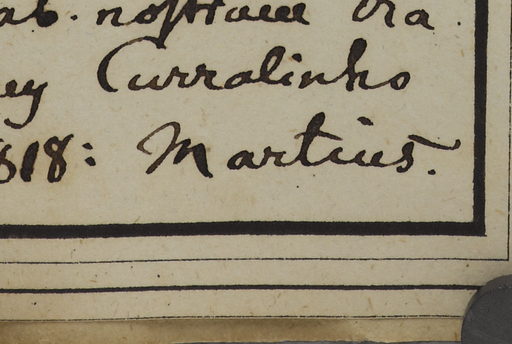 ab. nostram Bra
ey Curralinho
818: Martius.